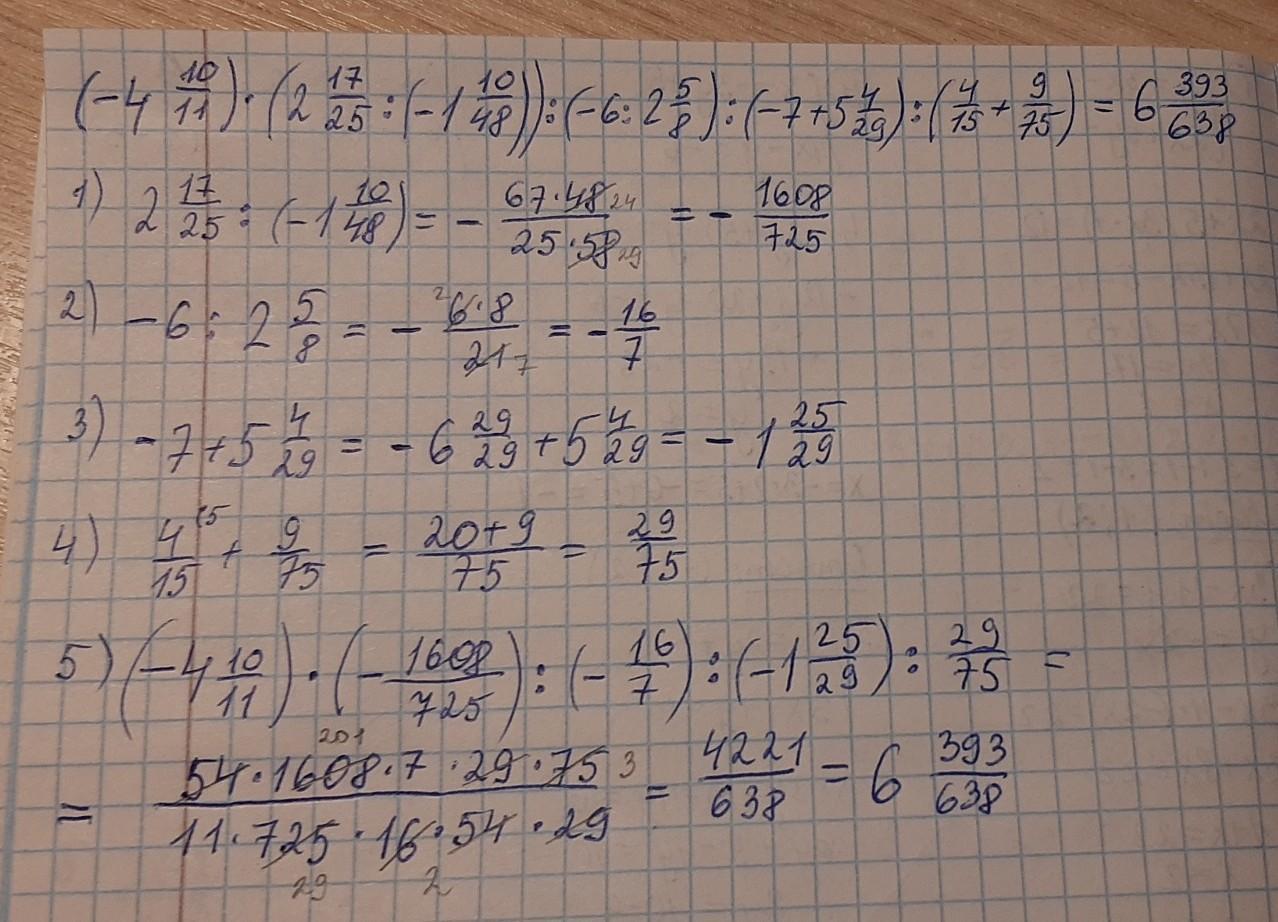 (-4 10/11) · (2 17/25 : (-1 10/48)) : (-6 : 2 5/8) : (-7 + 5 4/29) : (4/15 + 9/75) = 6 393/638
1) 2 17/25 : (-1 10/48) = - 67·48 24/25·58 29 = - 1608/725
2) -6 : 2 5/8 = - 2 6·8/21 7 = - 16/7
3) -7 + 5 4/29 = - 6 29/29 + 5 4/29 = - 1 25/29
4) 4/15 (5 + 9/75 = 20+9/75 = 29/75
5) (-4 10/11) · (- 1608/725) : (- 16/7) : (-1 25/29) : 29/75 =
= 54·1608 201·7·29·75 3/11·725 29·16 2·54·29 = 4221/638 = 6 393/638